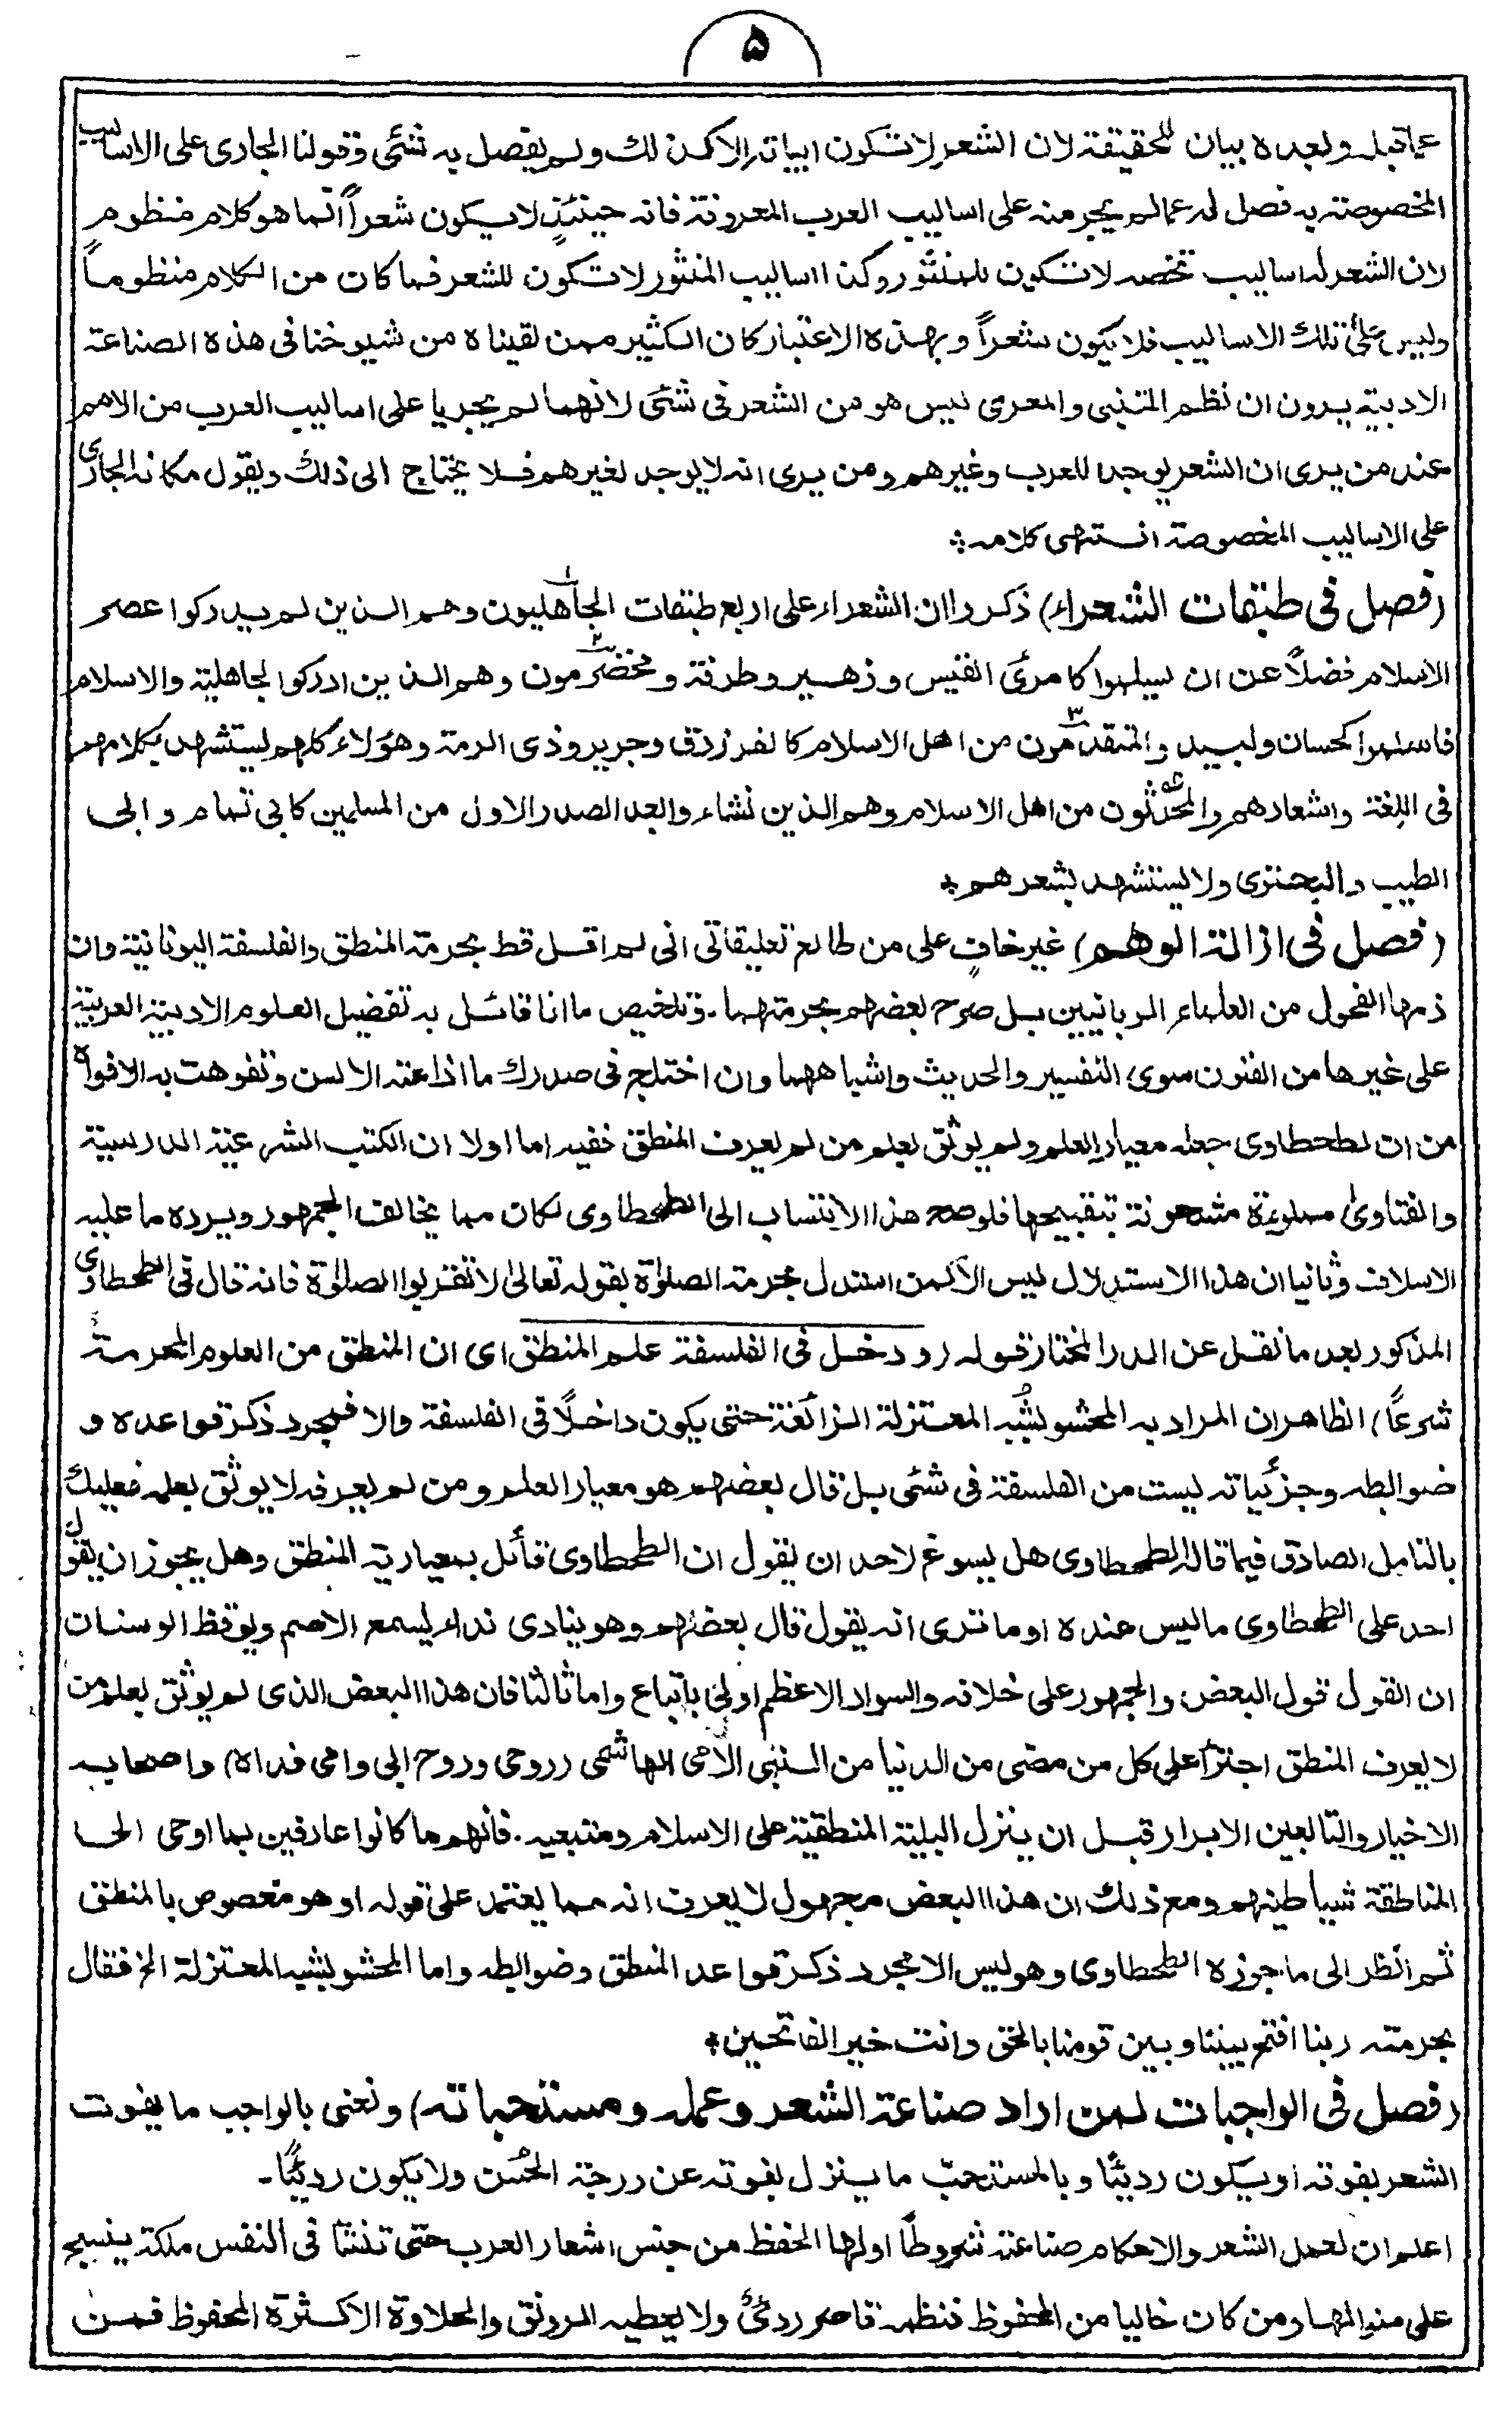 ۵
عما قبله وبعده بيان للحقيقة لان الشعر لا تكون ابياته الا كذلك ولم يفصل به شئى وقولنا الجارى على الاساليب
المخصوصة به فصل له عما لم يجر منه على اساليب العرب المعروفة فانه حينئذٍ لا يكون شعراً انما هو كلام منظوم
لان الشعر له اساليب تخصه لا تكون للمنثور وكذا اساليب المنثور لا تكون للشعر فما كان من الكلام منظوماً
وليس على تلك الاساليب فلا يكون شعراً وبهذه الاعتبار كان الكثير ممن لقيناه من شيوخنا فى هذه الصناعة
الادبية يرون ان نظم المتنبى والمعرى ليس هو من الشعر فى شئى لانهما لم يجريا على اساليب العرب من الامم
عند من يرى ان الشعر يوجد للعرب وغيرهم ومن يرى انه لا يوجد لغيرهم فلا يحتاج الى ذلك ويقول مكانه الجارى
على الاساليب المخصوصة انتهى كلامه
(فصل فى طبقات الشعراء) ذكروا ان الشعراء على اربع طبقات الجاهليون وهم الذين لم يدركوا عصر
الاسلام فضلاً عن ان يسلموا كامرئ القيس وزهير وطرفة ومخضرمون وهم الذين ادركوا لجاهلية والاسلام
فاسلموا كحسان ولبيد والمتقدمون من اهل الاسلام كالفرزدق وجرير وذى الرمة وهؤلاء كلهم يستشهد بكلامهم
فى اللغة واشعارهم والمحدثون من اهل الاسلام وهم الذين نشاء وا بعد الصدر الاول من المسلمين كابى تمام وابى
الطيب والبحترى ولا يستشهد بشعرهم
(فصل فى ازالة الوهم) غير خافٍ على من طالع تعليقاتى انى لم اقل قط بحرمة المنطق والفلسفة اليونانية وان
ذمها الفحول من العلماء الربانيين بل صرح بعضهم بحرمتهما۔ وتلخيص ما انا قائل به تفضيل العلوم الادبية العربية
على غيرها من الفنون سوى التفسير والحديث واشباههما وان اختلج فى صدرك ما اذاعته الالسن وتفوهت به الافواه
من ان لطحطاوى جعله معيار العلم ولم يوثق بعلم من لم يعرف المنطق ففيه اما اولا ان الكتب الشرعية الدرسية
والفتاوى مملوءة مشحونة بتقبيحها فلو صح هذا الانتساب الى الطحطاوى لكان مما يخالف الجمهور ويرده ما عليه
الاسلاف وثانيا ان هذا الاستدلال ليس الا كمن استدل بحرمة الصلوٰة بقوله تعالى لا تقربوا الصلوٰة فانه قال فى الطحطاوى
المذكور بعد ما نقل عن الدر المختار قوله (ودخل فى الفلسفة علم المنطق اى ان المنطق من العلوم المحرمة
شرعاً) الظاهر ان المراد به المحشو بشبه المعتزلة الزائغة حتى يكون داخلاً فى الفلسفة والا فمجرد ذكر قواعده و
ضوابطه وجزئياته ليست من الفلسفة فى شئى بل قال بعضهم هو معيار العلم ومن لم يعرفه لا يوثق بعلمه فعليك
بالتامل الصادق فيما قاله الطحطاوى هل يسوغ لاحد ان يقول ان الطحطاوى قائل بمعيارية المنطق وهل يجوز ان يقول
احد على الطحطاوى ما ليس عنده او ما ترى انه يقول قال بعضهم وهو ينادى نداء يسمع الاصم ويوقظ الوسنان
ان القول قول البعض والجمهور على خلافه والسواد الاعظم اولىٰ باتباع واما ثالثا فان هذا البعض الذى لم يوثق بعلم من
لا يعرف المنطق اجترأ على كل من مضى من الدنيا من النبى الامى الهاشمى (روحى وروح ابى وامى فداه) واصحابه
الاخيار والتابعين الابرار قبل ان ينزل البلية المنطقية على الاسلام ومتبعيه۔ فانهم ما كانوا عارفين بما اوحى الى
المناطقة شياطينهم ومع ذلك ان هذا البعض مجهول لا يعرف انه مما يعتمد على قوله او هو مغصوص بالمنطق
ثم انظر الى ما جوزه الطحطاوى وهو ليس الا مجرد ذكر قواعد المنطق وضوابطه واما المحشو بشبه المعتزلة الخ فقال
بحرمته ربنا افتح بيننا وبين قومنا بالحق وانت خير الفاتحين
(فصل فى الواجبات لمن اراد صناعة الشعر وعمله ومستحباته) ونعنى بالواجب ما يفوت
الشعر بفوته او يكون رديئًا وبالمستحب ما ينزل بفوته عن درجة الحُسن ولا يكون رديئًا۔
اعلم ان لعمل الشعر والاحكام صناعته شروطاً اولها الحفظ من جنس اشعار العرب حتى تنشأ فى النفس ملكة ينسج
على منوالها ومن كان خاليا من المحفوظ فنظمه قاصر ردئ ولا يعطيه الرونق والحلاوة الا كثرة المحفوظ فمن